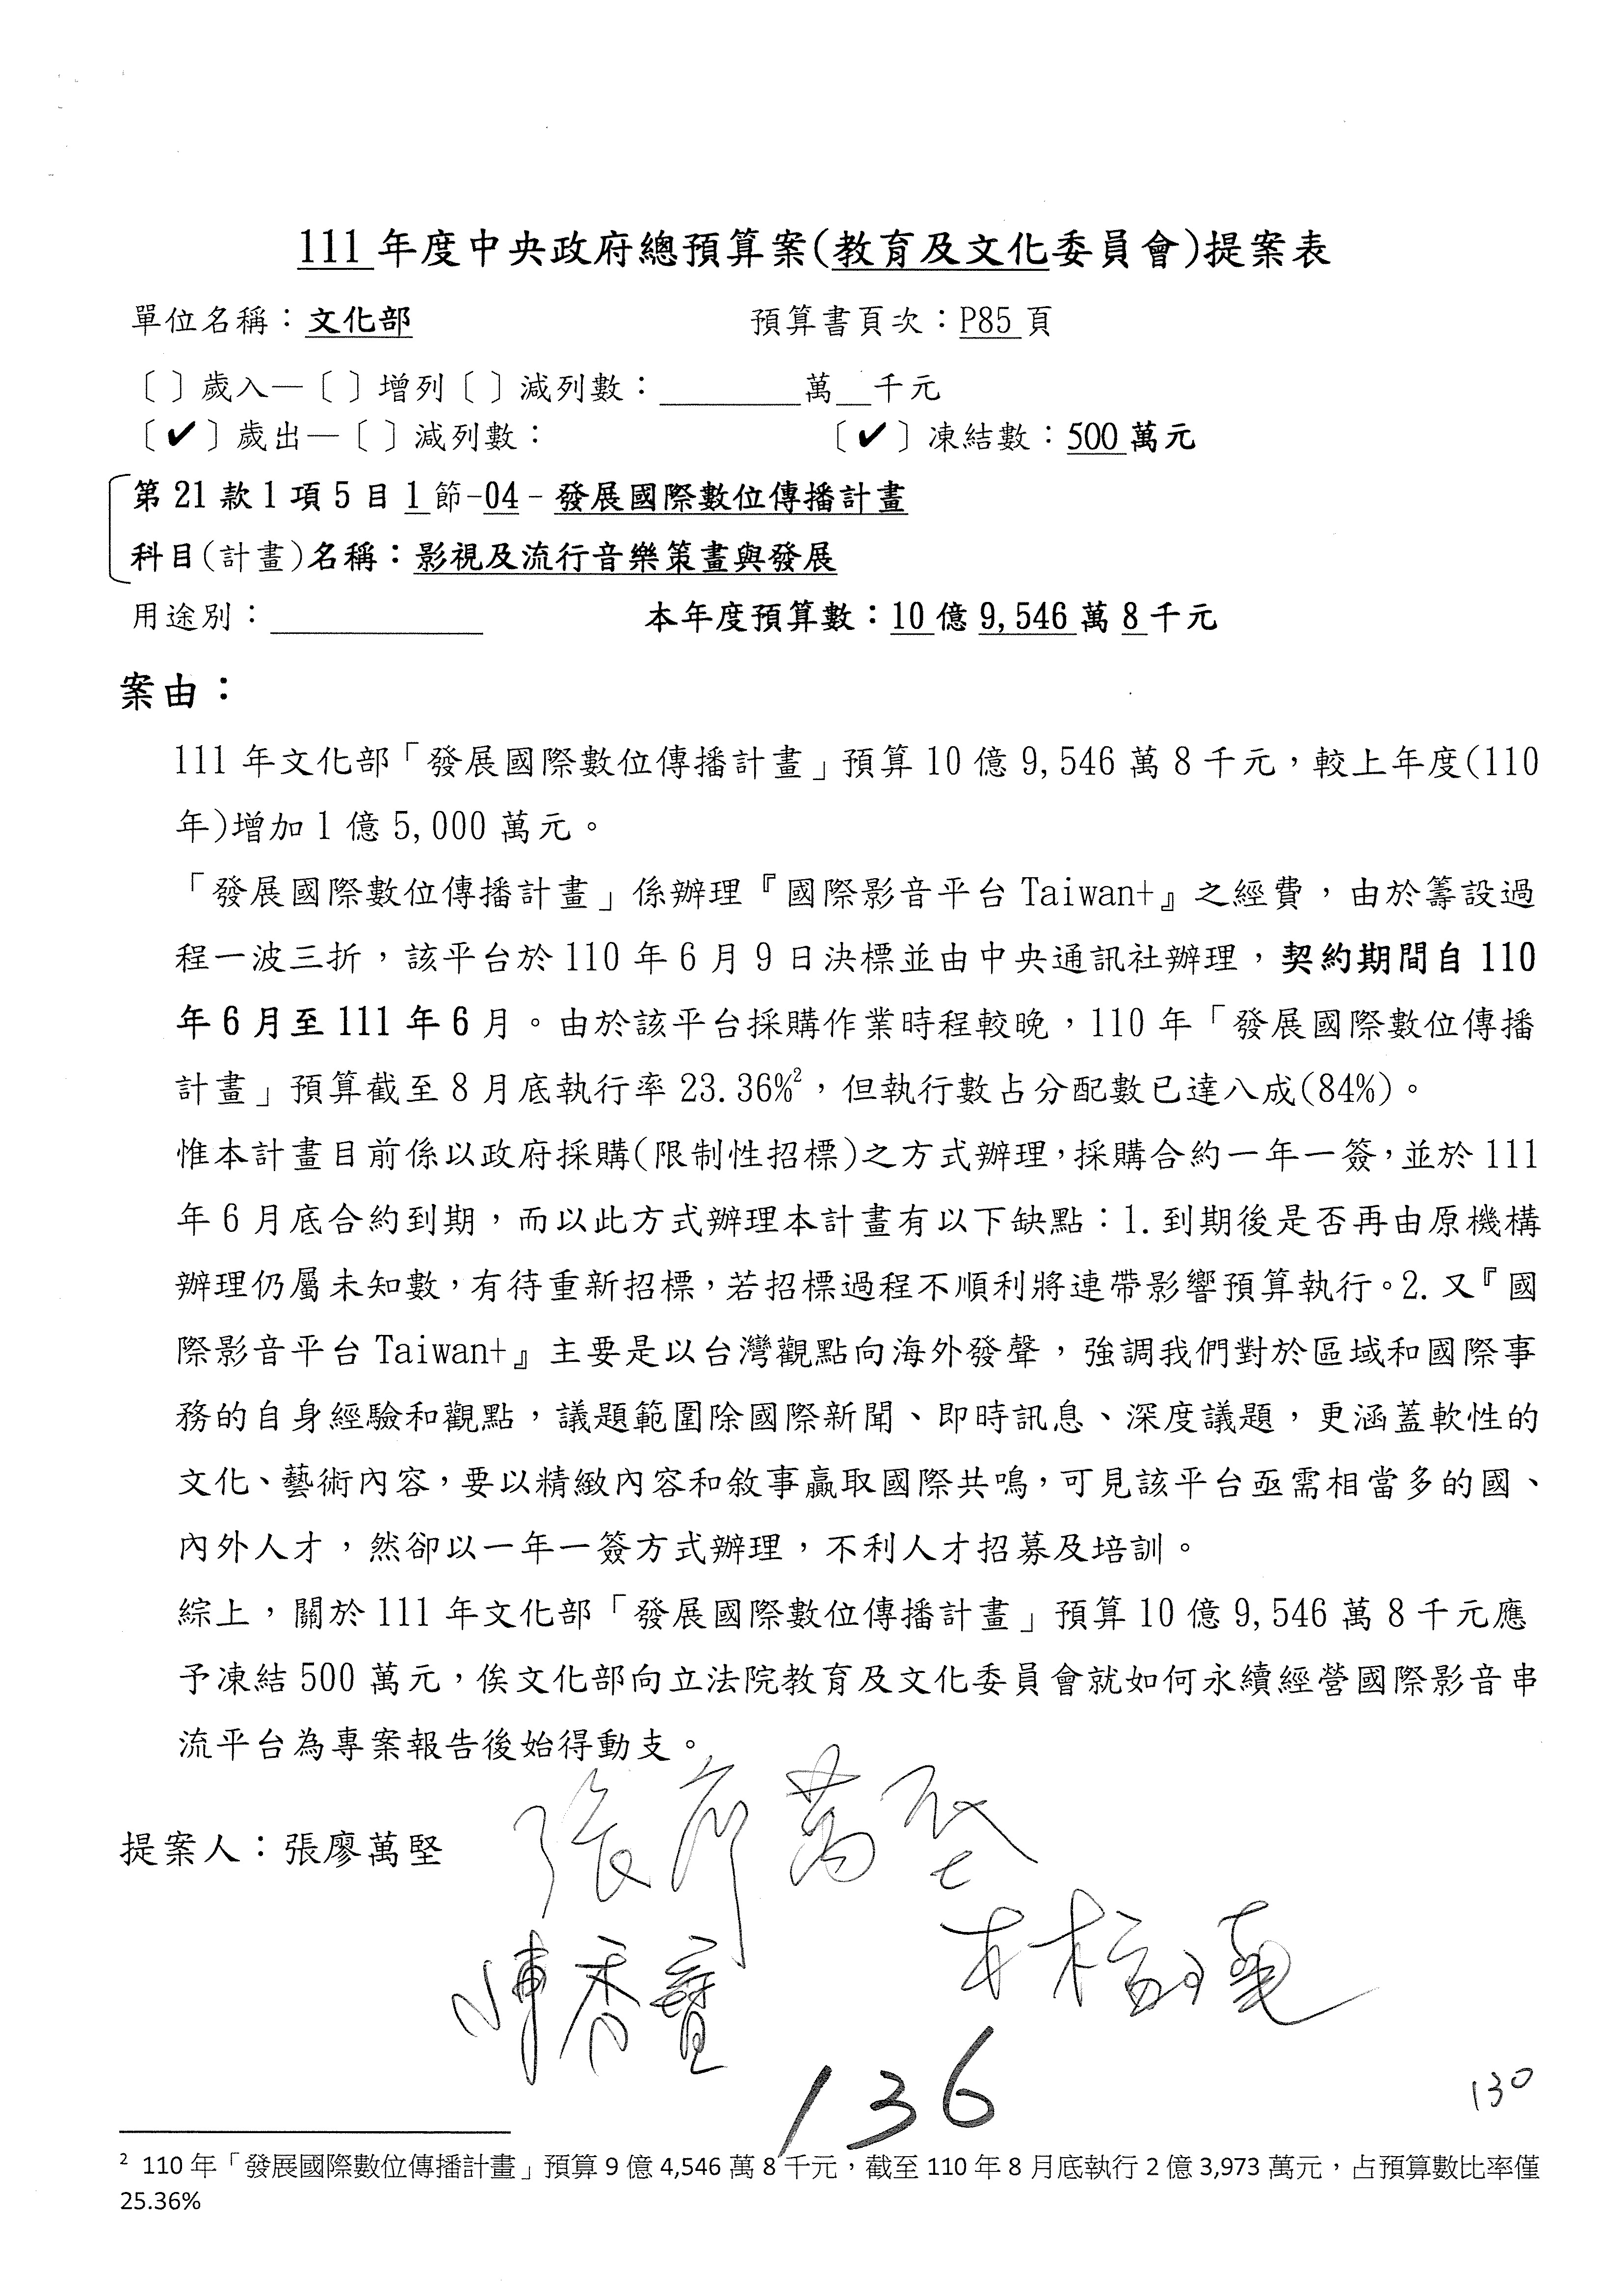 111 年度中央政府總預算案(教育及文化委員會)提案表
單位名稱：文化部 預算書頁次：P85 頁
〔 〕歲入—〔 〕增列〔 〕減列數：________萬__千元
〔✔〕歲出—〔 〕減列數： 〔✔〕凍結數：500 萬元
第 21 款 1 項 5 目 1 節-04-發展國際數位傳播計畫
科目(計畫)名稱：影視及流行音樂策畫與發展
用途別：____________ 本年度預算數：10 億 9,546 萬 8 千元
案由：
111 年文化部「發展國際數位傳播計畫」預算 10 億 9,546 萬 8 千元，較上年度(110
年)增加 1 億 5,000 萬元。
「發展國際數位傳播計畫」係辦理『國際影音平台 Taiwan+』之經費，由於籌設過
程一波三折，該平台於 110 年 6 月 9 日決標並由中央通訊社辦理，契約期間自 110
年 6 月至 111 年 6 月。由於該平台採購作業時程較晚，110 年「發展國際數位傳播
計畫」預算截至 8 月底執行率 23.36%2，但執行數占分配數已達八成(84%)。
惟本計畫目前係以政府採購(限制性招標)之方式辦理，採購合約一年一簽，並於 111
年 6 月底合約到期，而以此方式辦理本計畫有以下缺點：1.到期後是否再由原機構
辦理仍屬未知數，有待重新招標，若招標過程不順利將連帶影響預算執行。2.又『國
際影音平台 Taiwan+』主要是以台灣觀點向海外發聲，強調我們對於區域和國際事
務的自身經驗和觀點，議題範圍除國際新聞、即時訊息、深度議題，更涵蓋軟性的
文化、藝術內容，要以精緻內容和敘事贏取國際共鳴，可見該平台亟需相當多的國、
內外人才，然卻以一年一簽方式辦理，不利人才招募及培訓。
綜上，關於 111 年文化部「發展國際數位傳播計畫」預算 10 億 9,546 萬 8 千元應
予凍結 500 萬元，俟文化部向立法院教育及文化委員會就如何永續經營國際影音串
流平台為專案報告後始得動支。
張廖萬堅
提案人：張廖萬堅
陳秀寶
136
130
2 110 年「發展國際數位傳播計畫」預算 9 億 4,546 萬 8 千元，截至 110 年 8 月底執行 2 億 3,973 萬元，占預算數比率僅
25.36%